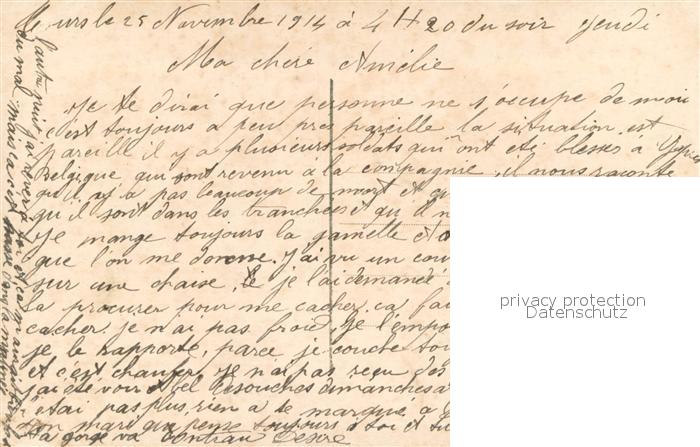 urs le 25 Novembre 1914 à 4 H 20 du soir Jeudi
Ma chéré Amélie
Je te dirai que personne ne s'occupe de moi
c'est toujours a peu pres pareille la situation est
pareille il y a plusieurs soldats qui ont etés blesses a
Belgique qui sont revenu à la compagnie, il nous raconte
qu'il n'y a pas beaucoup de mort et
qu'il sont dans les tranchées et qu'il n
Je mange toujours la gamelle et
que l'on me donne. J'ai vu un cou
sur une chaise, je l'ai demandé
la procurer pour me cacher. ca fai
cacher. je n'ai pas froid, Je l'empo
je le rapporte, parce je couche tou
et c'est chauffer. Je n'ai pas reçu des
j'ai été voir Abel Desouches dimanches a
J'etai pas plus rien a te marqué, a
ton mari qui pense toujours a toi et tu
Ta gorge va Desire
L'autre nuit j'ai révé à toi et ca m'a
du mal mais ca c'est passé dans la matiné
privacy protection
Datenschutz